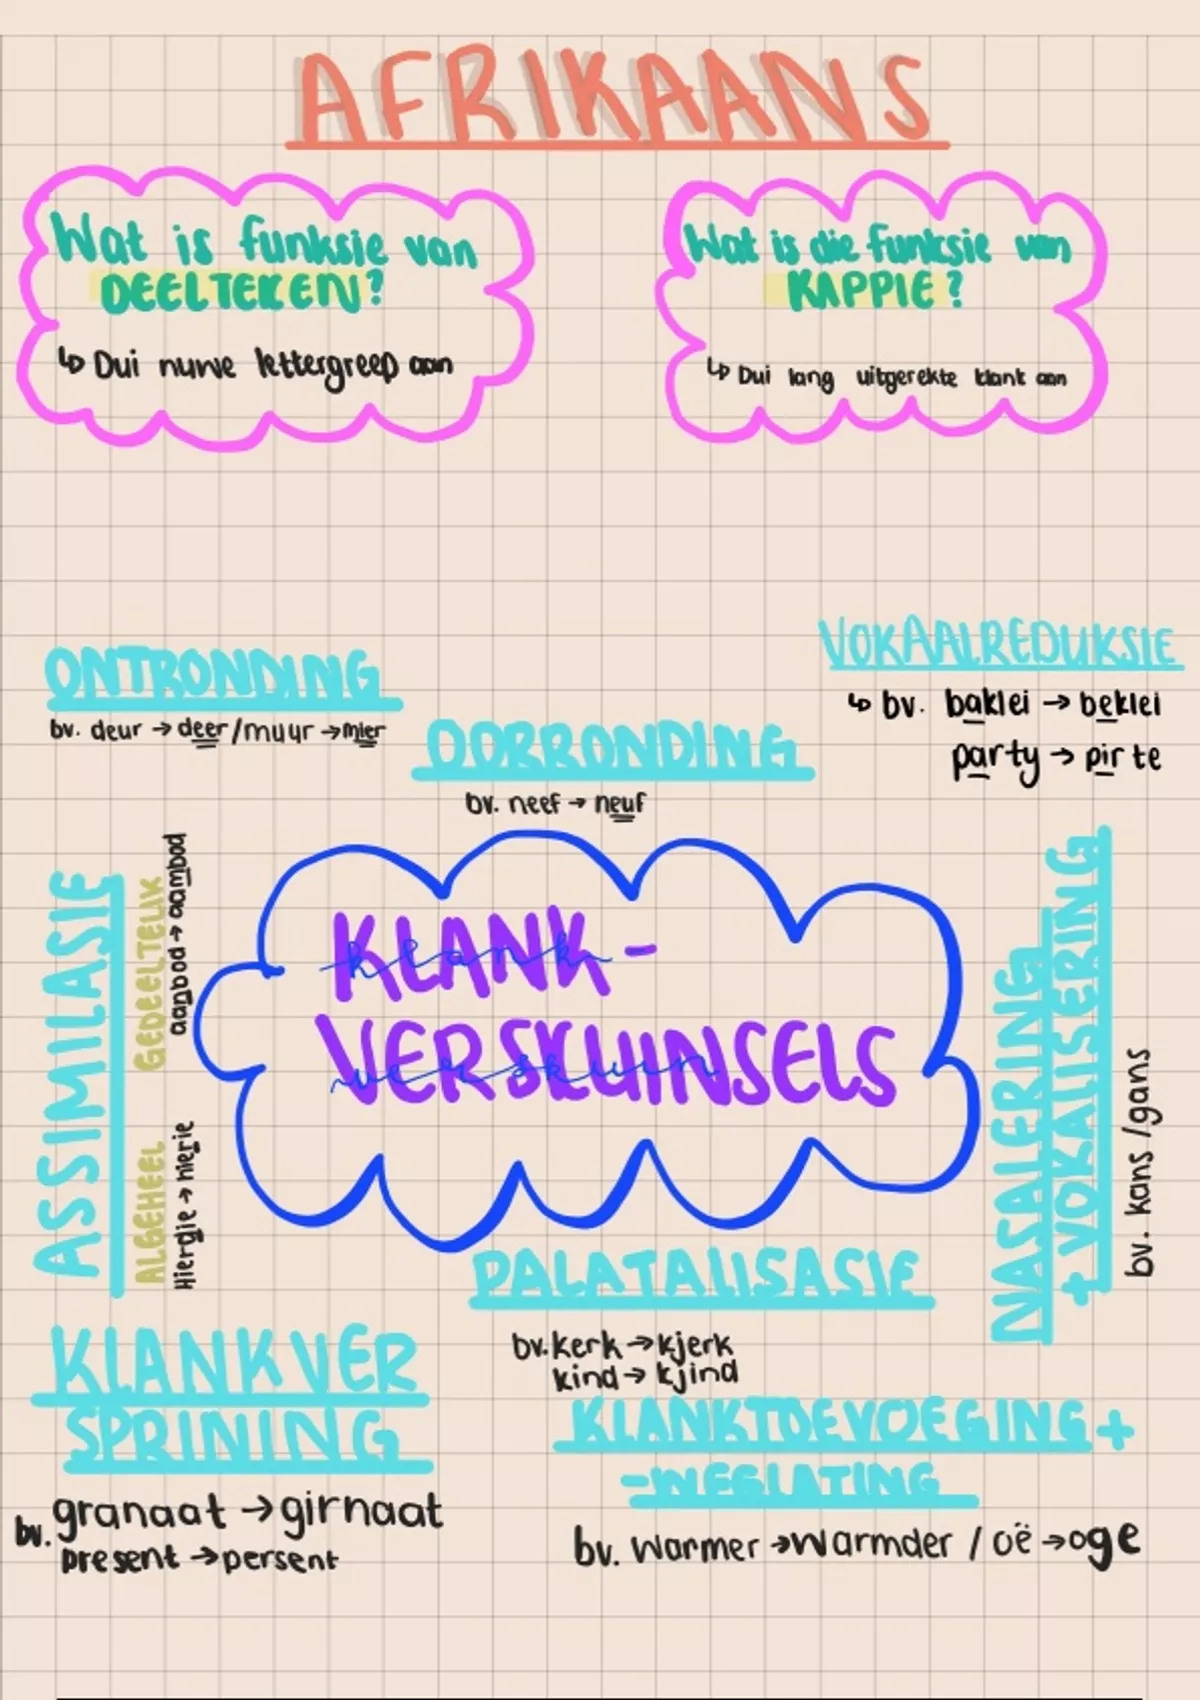 AFRIKAANS
Wat is funksie van
DEELTEKEN?
↳ Dui nuwe lettergreep aan
Wat is die funksie van
KAPPIE?
↳ Dui lang uitgerekte klank aan
ONTRONDING
bv. deur → deer / muur → mier
OORRONDING
bv. neef → neuf
VOKAALREDUKSIE
↳ bv. baklei → beklei
party → pirte
ASSIMILASIE
GEDEELTELIK
aanbod → aambod
ALGEHEEL
Hierdie → hierie
KLANK-
VERSKUINSELS
klank
verskuin
NASALERING
+ VOKALISERING
bv. kans / gans
PALATALISASIE
bv. kerk → kjerk
kind → kjind
KLANKVER
SPRINING
bv. granaat → girnaat
present → persent
KLANKTOEVOEGING +
-WEGLATING
bv. warmer → warmder / oë → oge